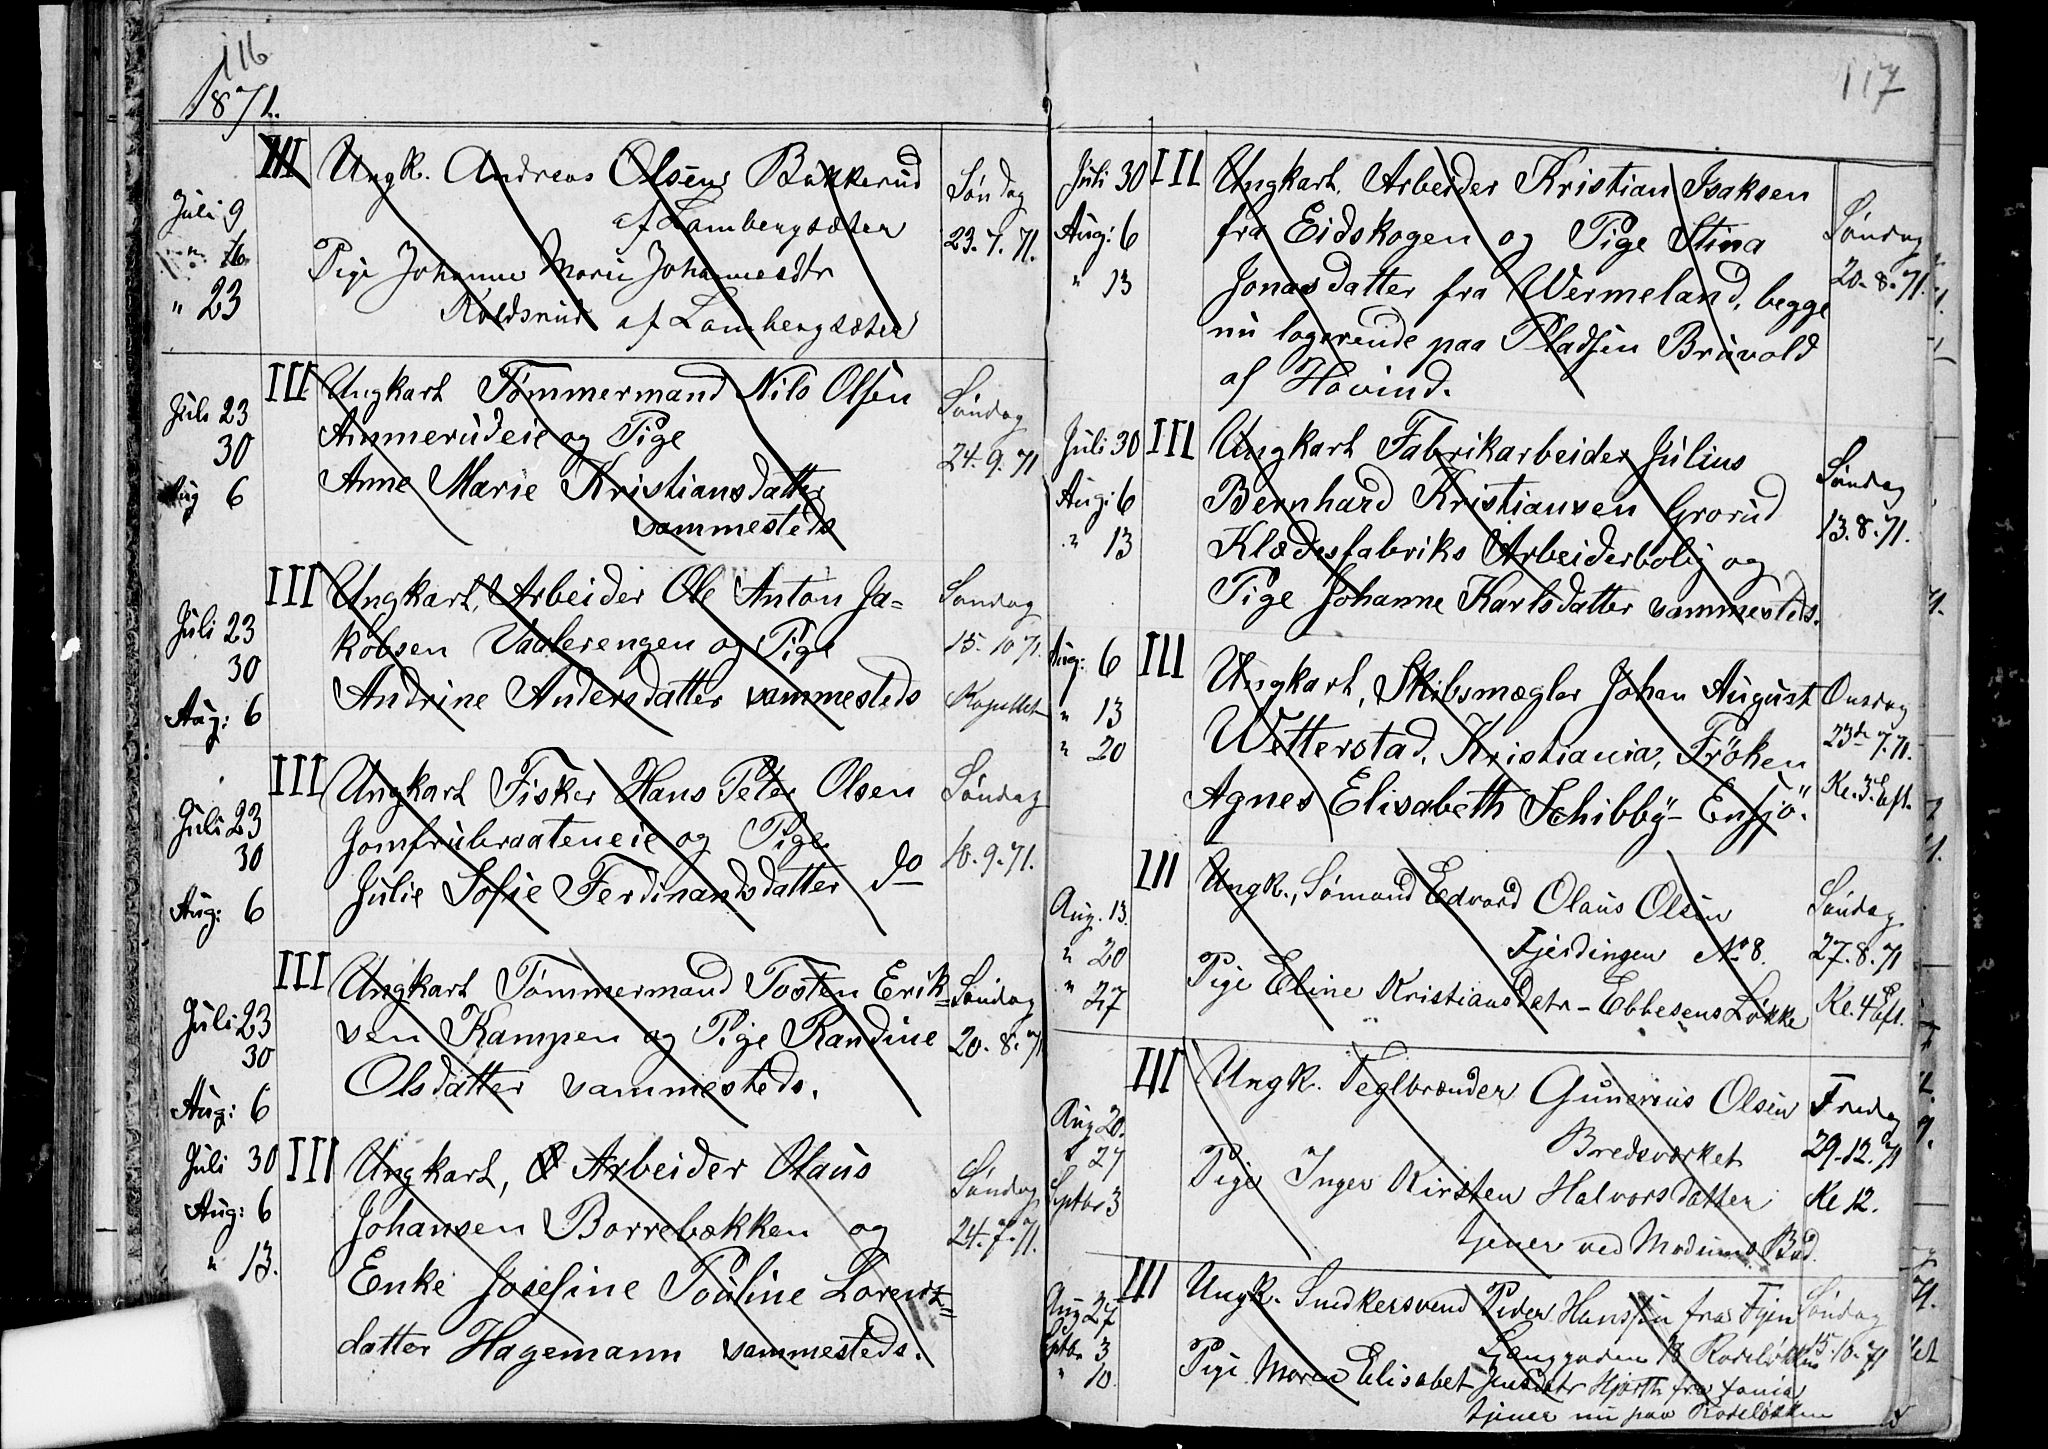 116
1871.
Juli 9
" 16
" 23
III
Ungk. Andreas Olsen Bakkerud
af Lambergsæter
Pige Johanne Marie Johannesdtr
af Lambergsæter
Søndag
23.7.71.
Juli 23
30
Aug 6
III
Ungkarl Tømmermand Nils Olsen
Ammerudeie og Pige
Anne Marie Kristiansdatter
sammesteds
Søndag
24.9.71
Juli 23
30
Aug: 6
III
Ungkarl, Arbeider Ole Anton Ja-
kobsen Vaalerengen og Pige
Andrine Andersdatter sammesteds
Søndag
15.10.71.
Kapellet
Juli 23
30
Aug: 6
III
Ungkarl Fisker Hans Peter Olsen
Jomfrubraateneie og Pige
Julie Sofie Ferdinandsdatter do
Søndag
10.9.71.
Juli 23
30
Aug: 6
III
Ungkarl Tømmermand Tosten Erik-
sen Kampen og Pige Randine
Olsdatter sammesteds.
Søndag
20.8.71
Juli 30
Aug: 6
" 13.
III
Ungkarl, Arbeider Olaus
Johansen Borrebækken og
Enke Josefine Pouline Lorentz-
datter Hagemann sammesteds.
Søndag
24.7.71.
117
Juli 30
Aug: 6
" 13
III
Ungkarl, Arbeider Kristian Isaksen
fra Eidskogen og Pige Stina
Jonasdatter fra Wermeland, begge
nu logerende paa Pladsen Bruvold
af Hovind.
Søndag
20.8.71.
Juli 30
Aug: 6
" 13
III
Ungkarl Fabrikarbeider Julius
Bernhard Kristiansen Grorud
Klædesfabriks Arbeiderbolig og
Pige Johanne Karlsdatter sammesteds.
Søndag
13.8.71.
Aug: 6
" 13
" 20
III
Ungkarl, Skibsmægler Johan August
Wetterstad, Kristiania, Frøken
Agnes Elisabeth Schibby - Ensjö.
Onsdag
23de 7.71.
Kl. 3 Eft.
Aug. 13.
" 20
" 27
III
Ungk., Sømand Edvard Olaus Olsen
Fjerdingen No 8.
Pige Eline Kristiansdatr - Ebbesens Løkke
Søndag
27.8.71
Kl. 4 Eft.
Aug 20.
" 27
Septbr 3
III
Ungk. Teglbrænder Gunerius Olsen
Bredsværket
Pige Inger Kirsten Halvorsdatter
tjener ved Modums Bad.
Fredag
29.12.71
Kl 12.
Aug 27
Septbr 3
" 10.
III
Ungk. Snedkersvend Peder Hanssen fra Fyen
Langgaden 13 Rodeløkken
Pige Maren Elisabet Jensdatr Hjorth fra Xania
tjener nu paa Rodeløkken
Søndag
15.10.71